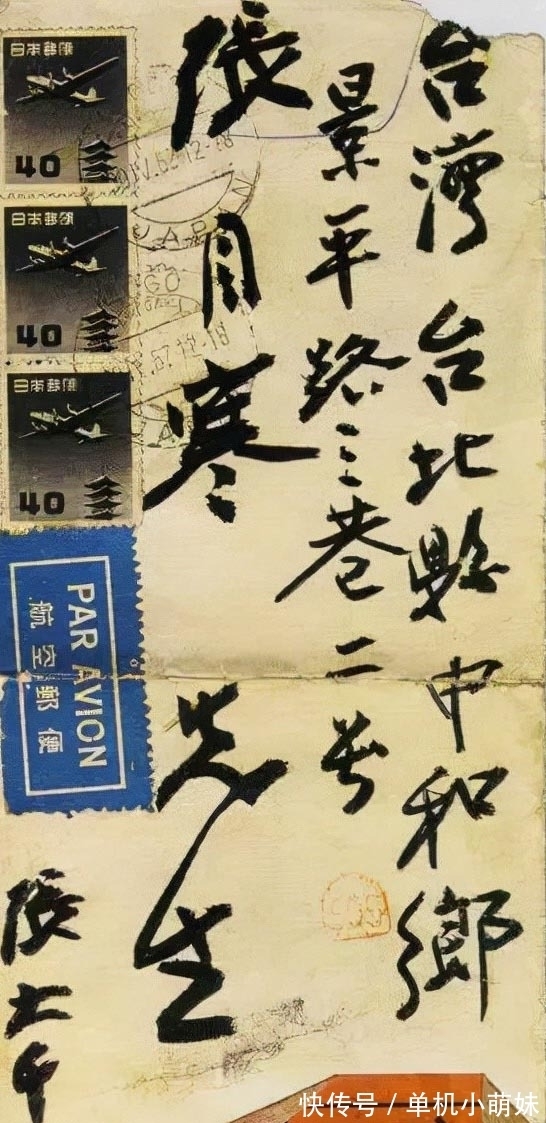 台灣 台北縣中和鄉
景平路三巷二号
張目寒 先生
張大千
日本郵便
40
日本郵便
40
日本郵便
40
PAR AVION
航空郵便
快传号 / 单机小萌妹